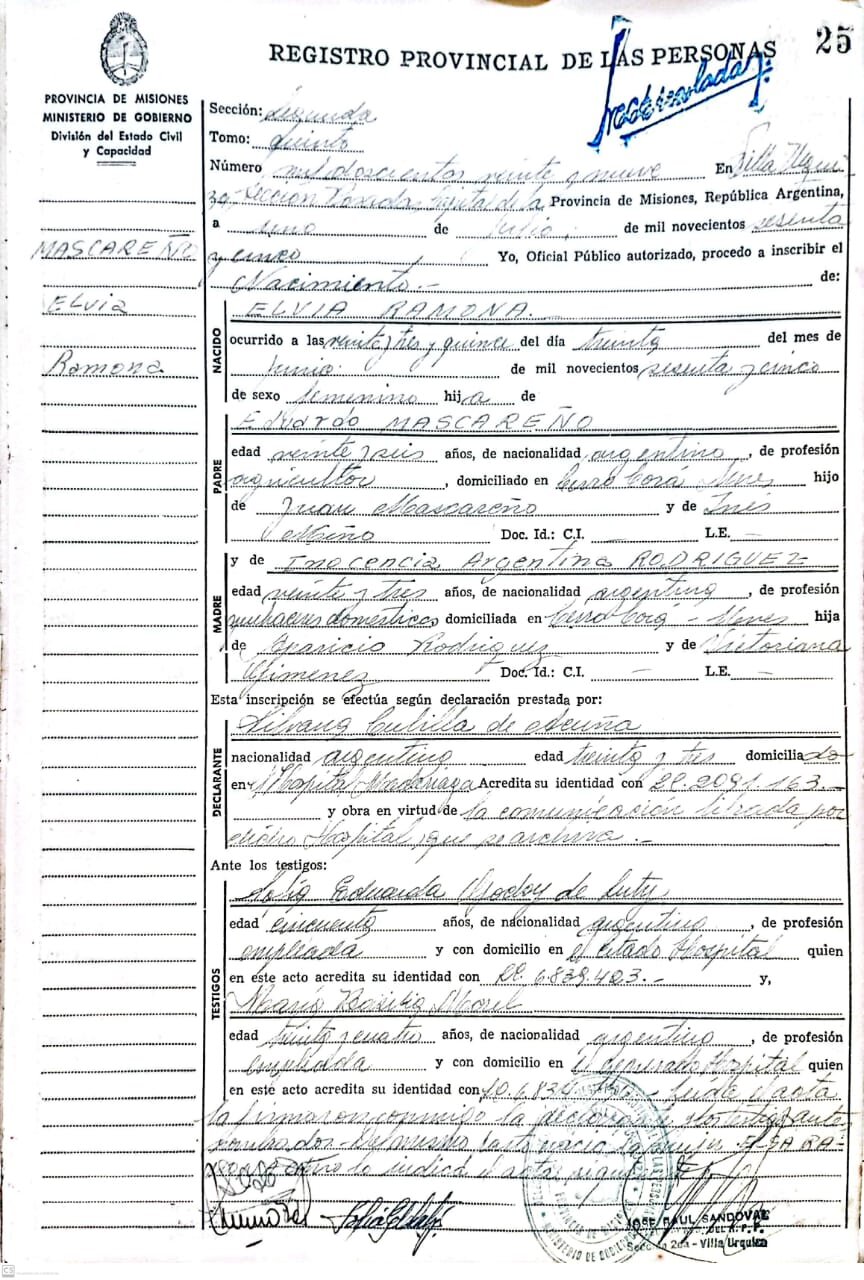 25
REGISTRO PROVINCIAL DE LAS PERSONAS
PROVINCIA DE MISIONES
MINISTERIO DE GOBIERNO
División del Estado Civil
y Capacidad
MASCAREÑO
Elvia
Ramona
Sección: Segunda
Tomo: quinto
Número mil doscientos veinte y nueve En Villa Urqui
Sección Posadas Capital de la Provincia de Misiones, República Argentina,
a uno de Julio de mil novecientos sesenta
y cinco Yo, Oficial Público autorizado, procedo a inscribir el
Nacimiento.- de:
NACIDO
ELVIA RAMONA.
ocurrido a las veinte y tres y quince del día treinta del mes de
Junio de mil novecientos sesenta y cinco
de sexo femenino hija de
PADRE
Eduardo MASCAREÑO
edad veinte y seis años, de nacionalidad argentino, de profesión
agricultor, domiciliado en Cerro Corá hijo
de Juan Mascareño y de Inés
Miño Doc. Id.: C.I. — L.E. —
MADRE
y de Inocencia Argentina RODRIGUEZ
edad veinte y tres años, de nacionalidad argentina, de profesión
quehaceres domesticos domiciliada en Cerro Corá - hija
de Aparicio Rodriguez y de Victoriana
Gimenez Doc. Id.: C.I. — L.E. —
Esta inscripción se efectúa según declaración prestada por:
DECLARANTE
Silvana Cubilla de Acuña
nacionalidad argentina edad treinta y tres domiciliado
en Hospital Madariaga Acredita su identidad con 2.091.163.-
y obra en virtud de la comunicación librada por
dicho Hospital, que se archiva.-
Ante los testigos:
TESTIGOS
Eduarda Godoy de
edad cincuenta años, de nacionalidad argentina, de profesión
empleada y con domicilio en el citado Hospital quien
en este acto acredita su identidad con 6.839.423.- y,
María Morel
edad treinta y cuatro años, de nacionalidad argentina, de profesión
empleada y con domicilio en el Hospital quien
en este acto acredita su identidad con Leída el acta
la firmaron conmigo la declarante y los testigos antes
nombrados
JOSE RAUL SANDOVAL
Sección 2da - Villa Urquiza